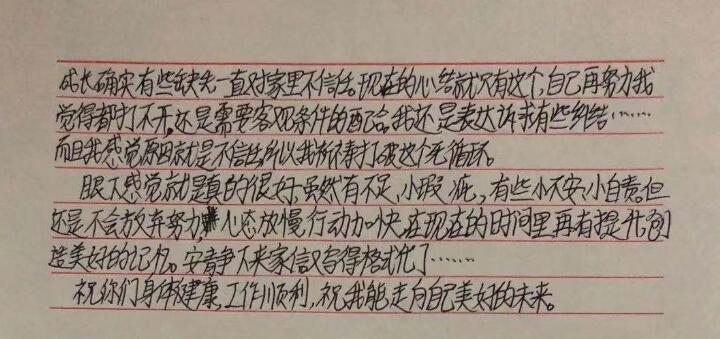 成长确实有些缺失一直对家里不信任。现在的心结就只有这个,自己再努力我
觉得都打不开,还是需要客观条件的配合。我还是表达诉求有些纠结……
而且我感觉原因就是不信任,所以我祈祷打破这个死循环。
眼下感觉就是真的很好,虽然有不足、小瑕疵,有些小不安、小自责。但
还是不会放弃努力,心态放慢行动加快,在现在的时间里再有提升,创
造美好的记忆。安静下来家信又写得格式化了……
祝你们身体健康,工作顺利,祝我能走向自己美好的未来。